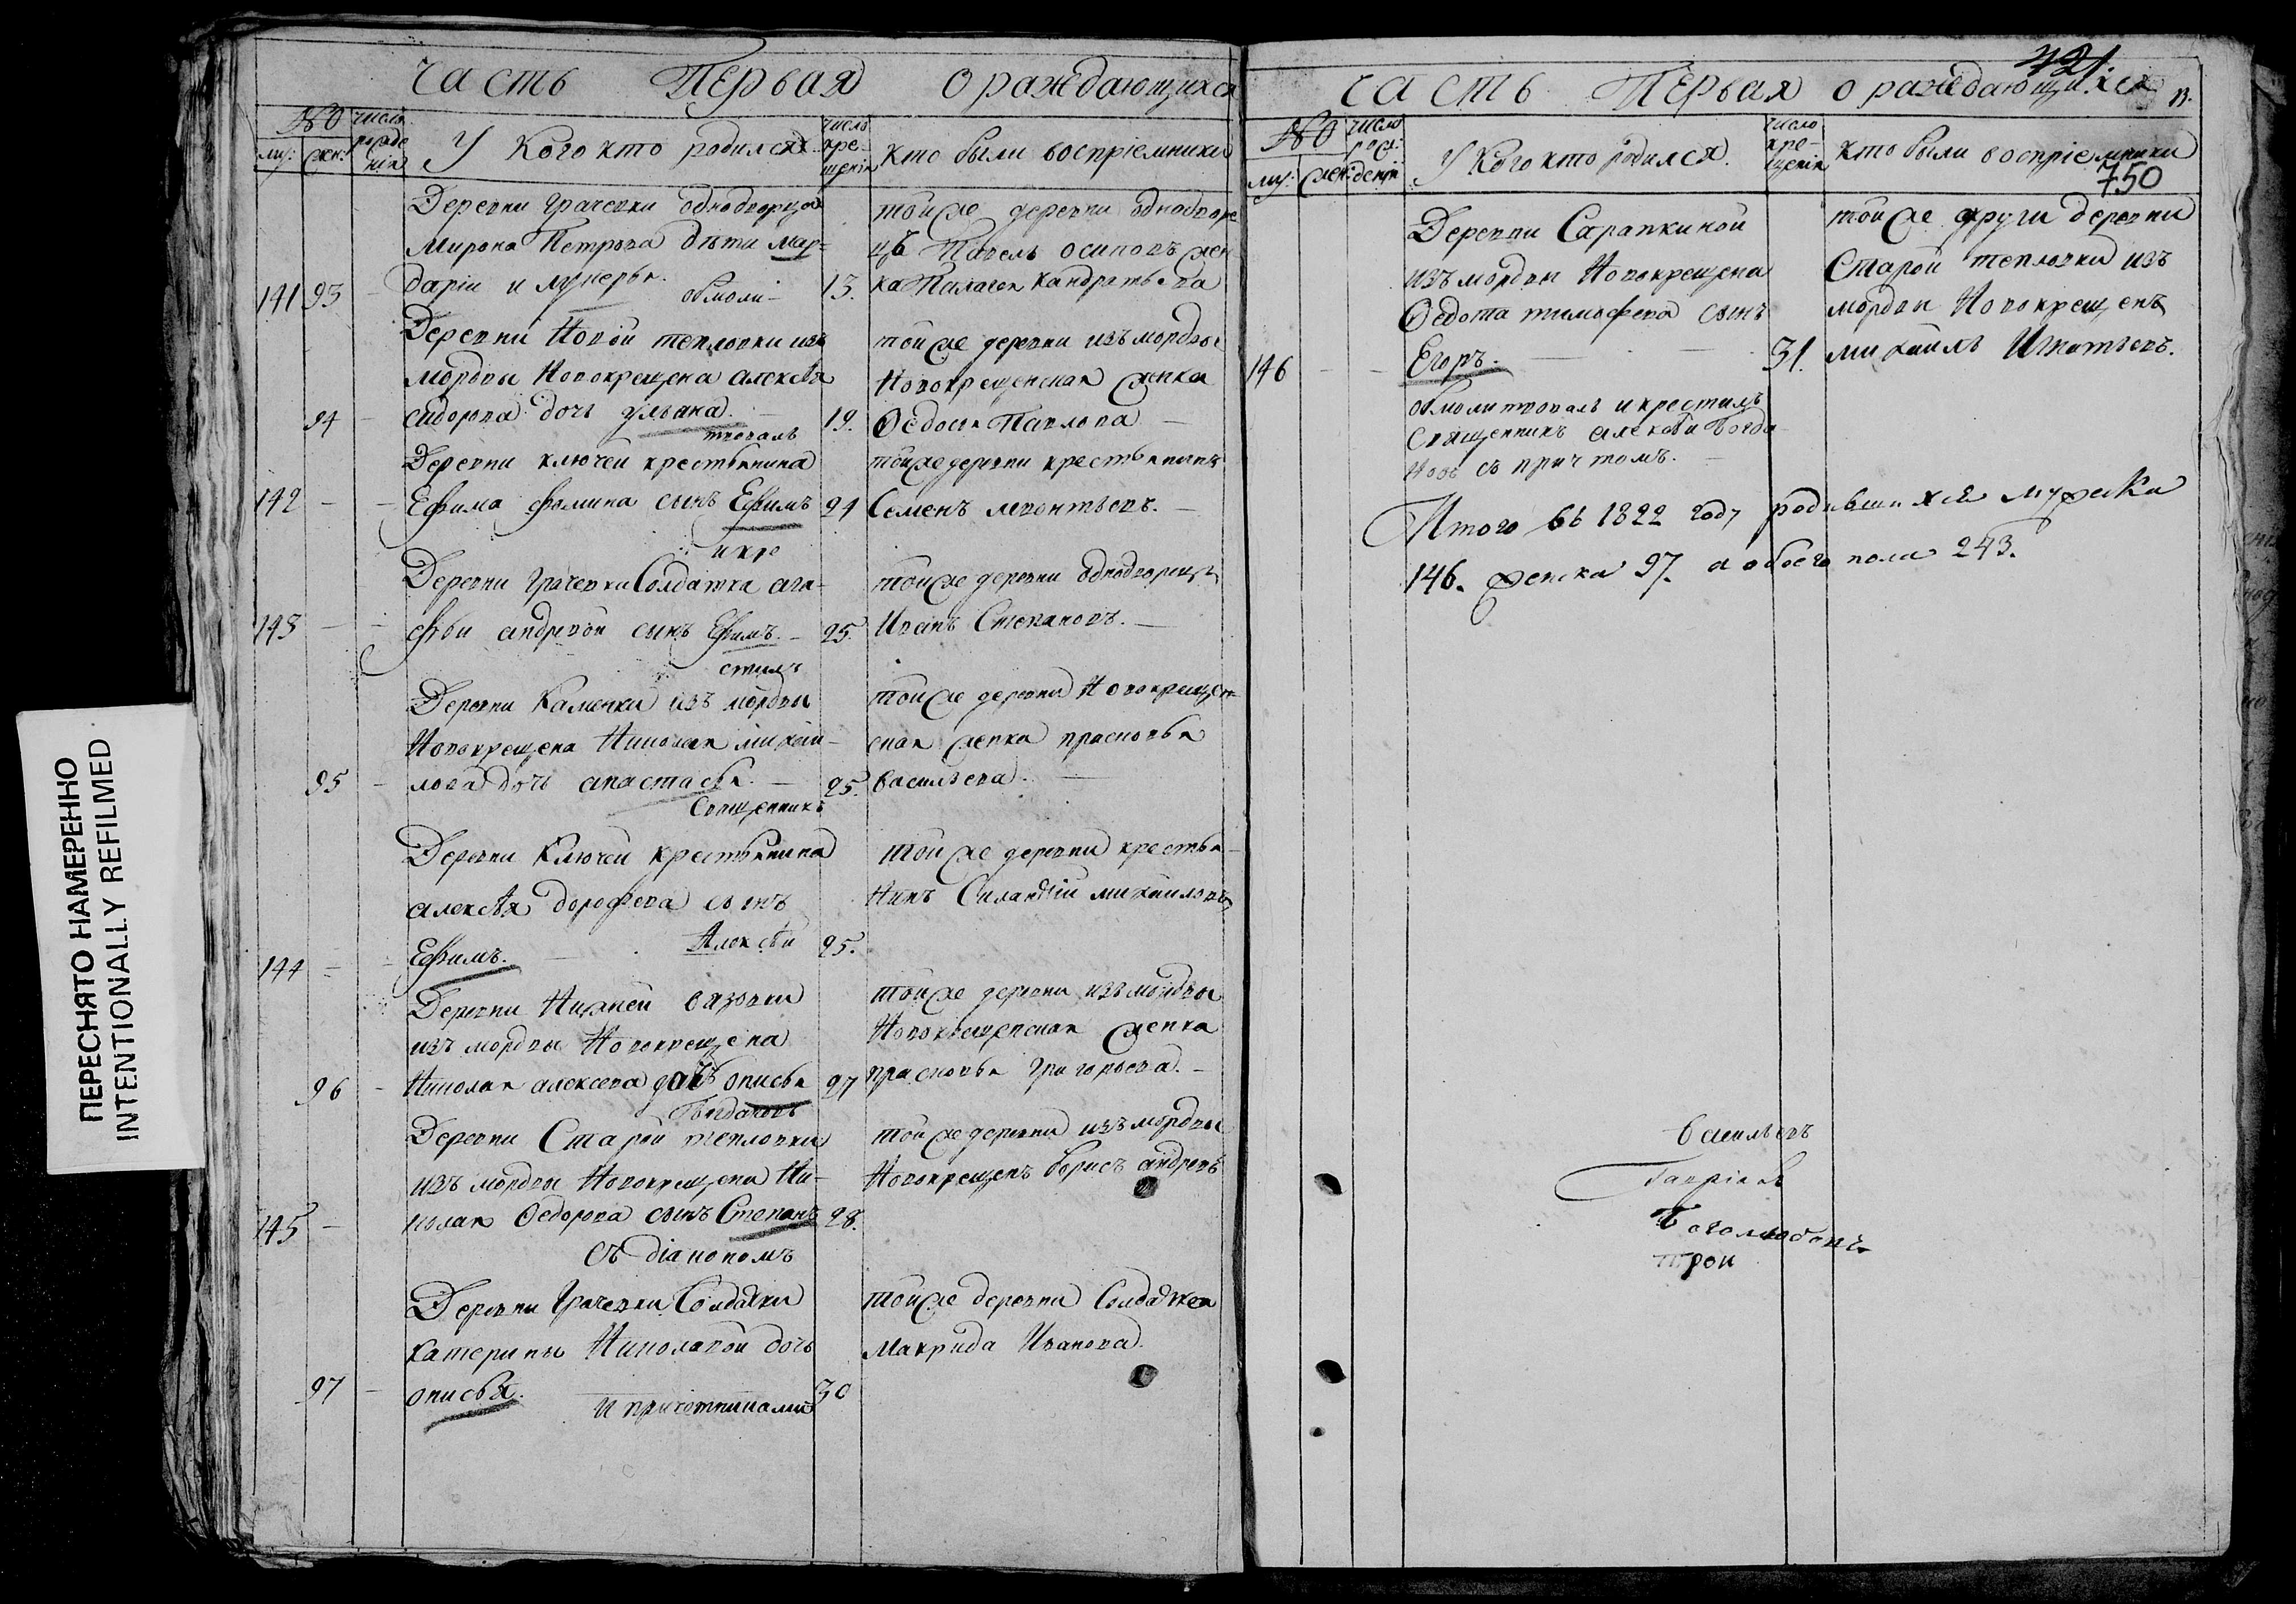 ПЕРЕСНЯТО НАМЕРЕННО
INTENTIONALLY REFILMED
Часть Первая о раждающихся
№
число рожденія
У кого кто родился
число крещенія
кто были воспріемники
муж: жен:
Деревни Грачевки однодворца
Мирона Петрова дѣти Мар-
141 93 – даріи и 13.
обмоли-
тойже деревни однодвор
цъ Павелъ Осиповъ жен
ка Палагея Кандратьева
Деревни Новой тепловки изъ
мордвы Новокрещена алексѣя
94 – сидорова дочь ульяна. 19.
твовалъ
тойже деревни изъ мордвы
Новокрещенская женка
Ѳедосья Павлова
Деревни ключей крестьянина
142 – – Ефима Фомина сынъ Ефимъ 24
и кре
тойже деревни крестьянинъ
Семенъ леонтьевъ.
Деревни Грачевки Солдатка ага-
143 – – фьи андревой сынъ Ефимъ. – 25.
стилъ
тойже деревни однодворецъ
Иванъ Степановъ.
Деревни Каменки изъ мордвы
Новокрещена Николая михаи-
95 – лова дочь анастасья. – 25.
Священникъ
тойже деревни Новокрещен-
ская женка прасковья
васильева.
Деревни Ключей крестьянина
алексѣя дорофѣева сынъ
144 – – Ефимъ. 25.
Алексѣй
тойже деревни крестья-
нинъ михайловъ
Деревни Нижней вязовки
изъ мордвы Новокрещена
96 – Николая алексева дочь онисья 27
Богдановъ
тойже деревни изъ мордвы
Новокрещенская женка
прасковья Григорьева. –
Деревни Старой тепловки
изъ мордвы Новокрещена Ни-
145 – колая Ѳедорова сынъ Степанъ 28.
Съ діакономъ
тойже деревни изъ мордвы
Новокрещенъ Борисъ андревъ
Деревни Грачевки Солдатки
катерины Николавой дочь
97 – онисья. 30
и причетниками
тойже деревни Солдатка
Макрида Иванова.
421.
Часть Первая о раждающихся
№
число рождені
У кого кто родился.
число крещенія
кто были воспріемники
муж: жен:
750
Деревни Сарапкиной
изъ мордвы Новокрещена
Ѳедота тимофѣева сынъ
146 – – Егоръ. 31.
тойже други деревни
Старой тепловки изъ
мордвы Новокрещенъ
михайлъ Игнатьевъ.
обмолитвовалъ и крестилъ
Священникъ алексѣй Богда
новъ съ причтомъ.
Итого въ 1822 году родившихся мужска
146. женска 97. а обоего пола 243.
Васильевъ
Гавріилъ
Боголюбовъ